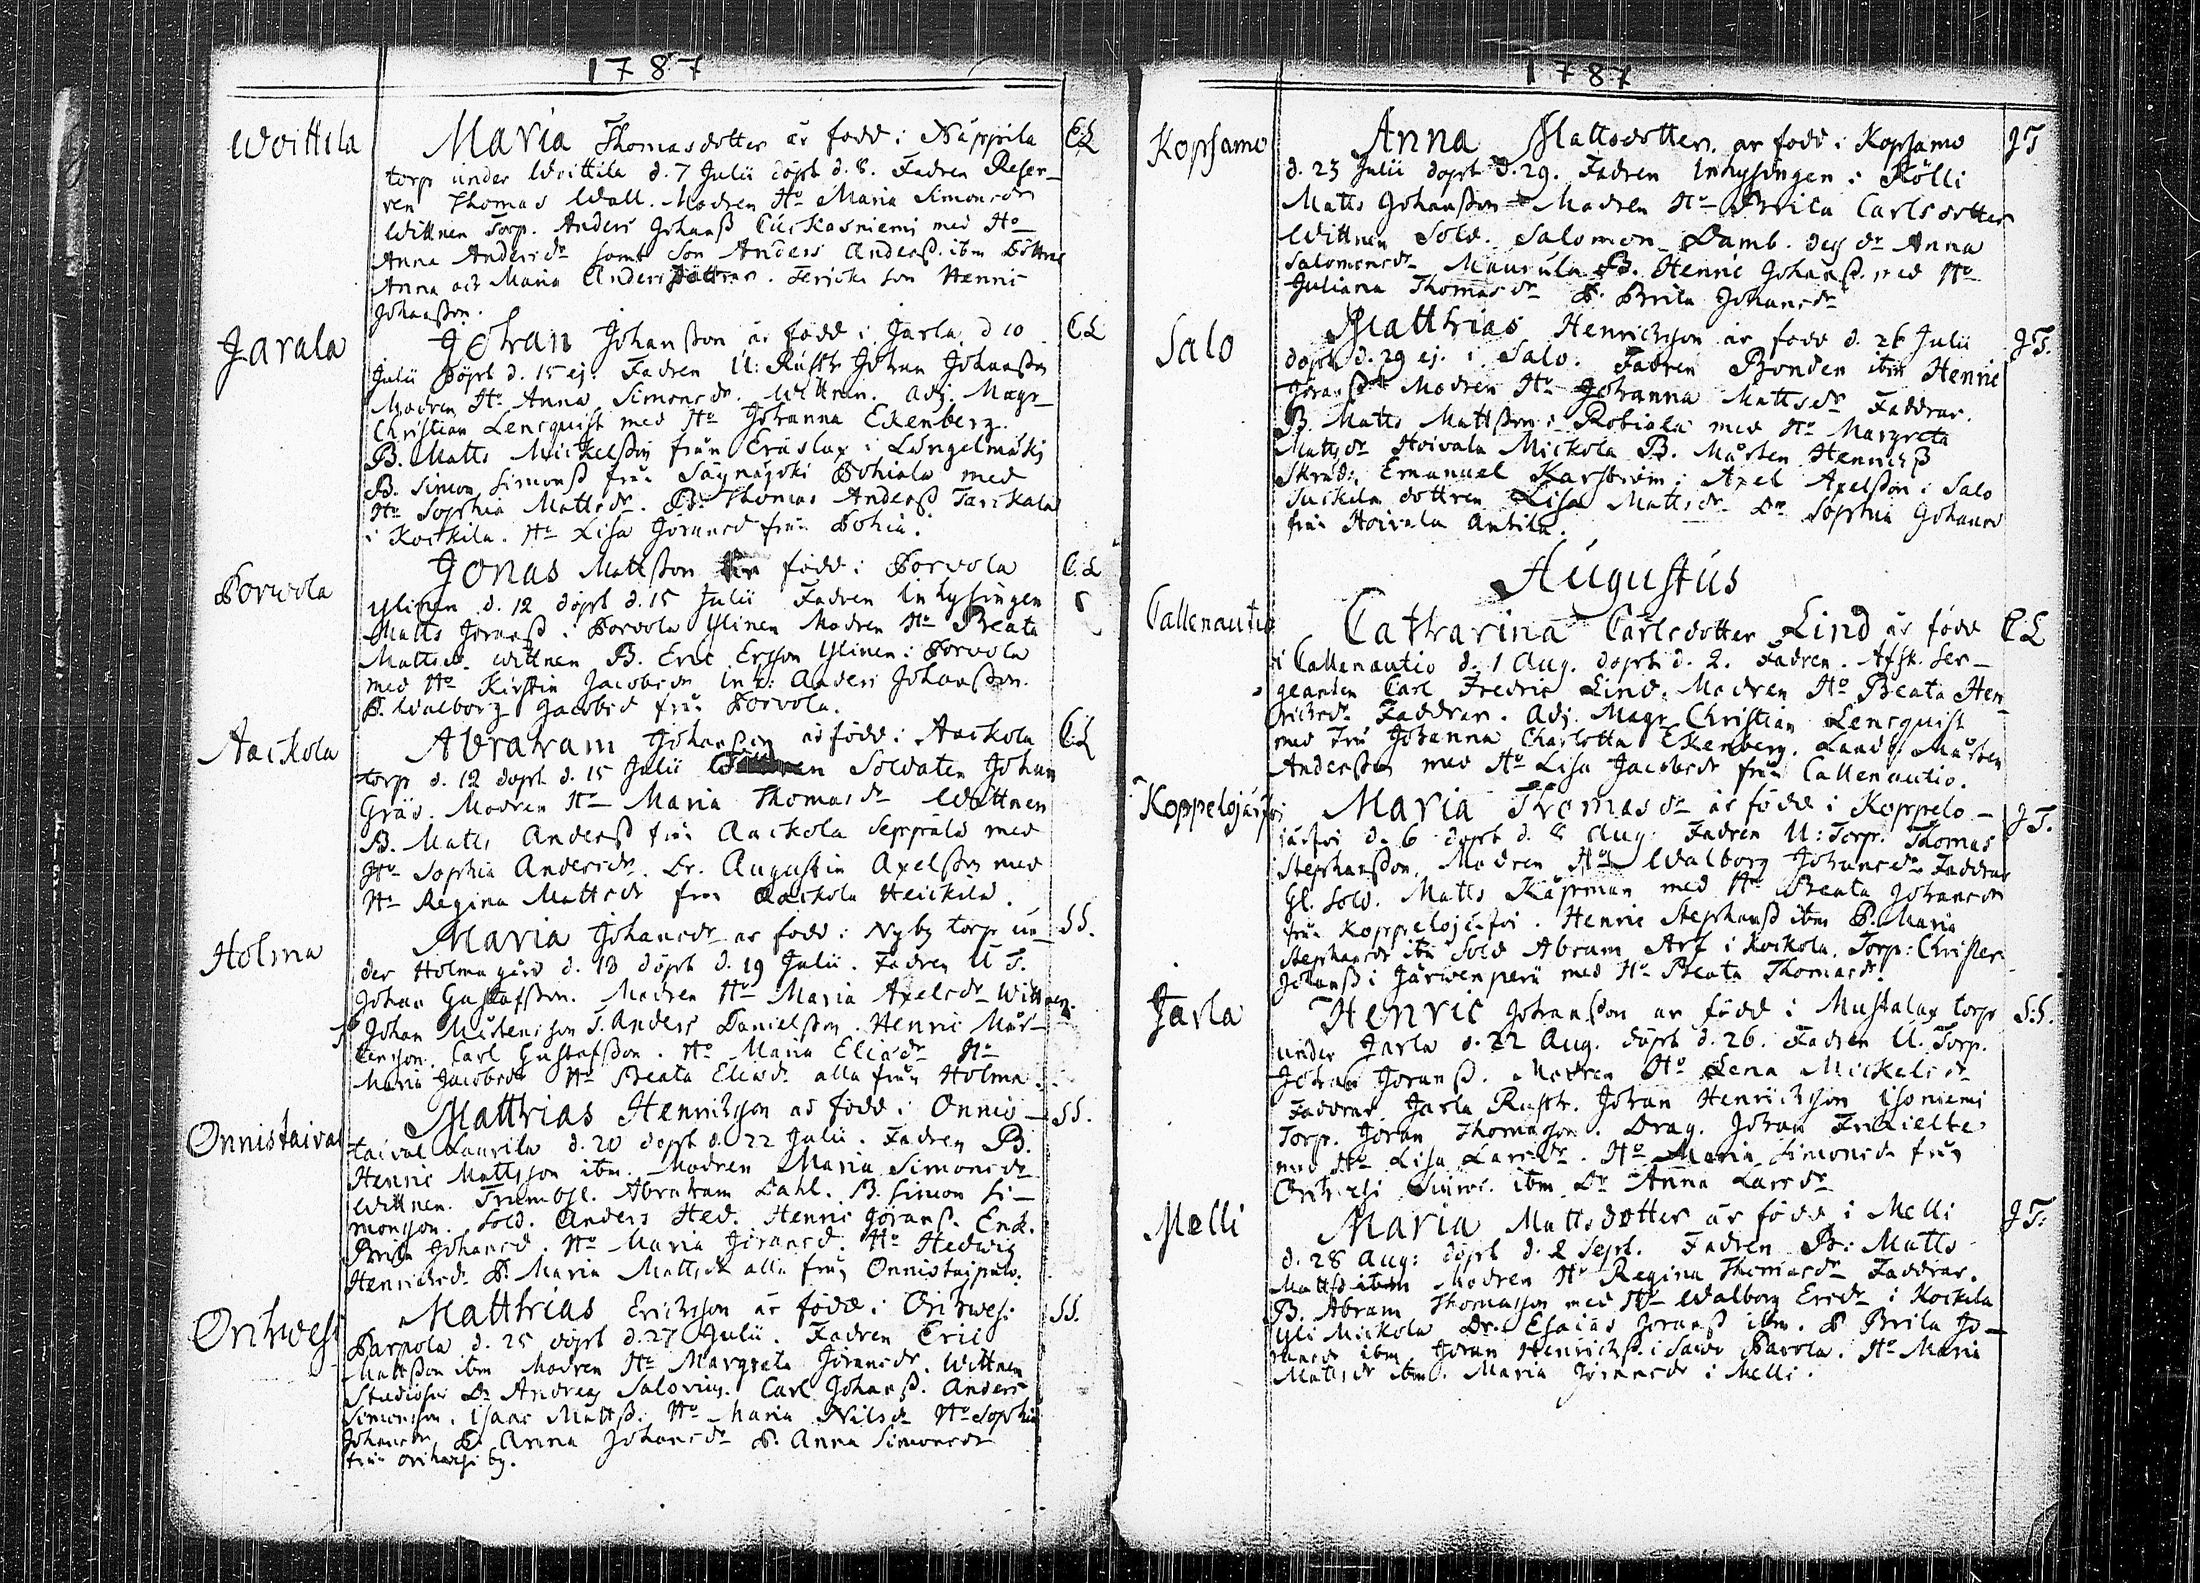 1787
Woittila
Maria Thomasdotter är född i Näppilä C:L
torp under Woittila d. 7 Julii döpt d. 8. Fadren Reser-
ven Thomas Wall. Modren Ho Maria Simonsdr
Wittnen Torp. Anders Johanß med Ho
Anna Andersdr samt Son Anders Anderß. ibm Döttrar
Anna och Maria Andersdöttrar. Henric
Johanßon.
Jarala
Johan Johanßon är född i Jarla d 10 C:L
Julii döpt d. 15 ej. Fadren U: Rustk Johan Johanßon
Modren Ho Anna Simonsdr. Wittnen. Adj. Magr
Christian Lencquist med Ho Johanna Ekenberg.
B. Matts Mickelßon från Eräslax i Längelmäki
B. Simon Simonß från Säynäjoki Pohiala med
Ho Sophia Mattsdr. B. Thomas Anderß
i Kockila. Ho Lisa Joransd från Pohia.
Porvola
Jonas Mattßon är född i Porvola C:L
Ylinen d. 12 döpt d. 15 Julii Fadren Inhysingen
Matts Joranß i Porvola Ylinen Modren Ho Beata
Mattsd. Wittnen B. Eric Ersson Ylinen i Porvola
med Ho Kirstin Jacobsdr Anders Johanßon.
P. Walborg Jacobsd från Porvola.
Aackola
Abraham Johanßon är född i Aackola C:L
torp d. 12 döpt d. 15 Julii Soldaten Johan
Gräs. Modren Ho Maria Thomasdr Wittnen
B. Matts Anderß från Aackola Seppälä med
Ho Sophia Andersdr. Dr. Augustin Axelßon med
Ho Regina Mattsdr från Aackola Heickilä.
Holma
Maria Johansdr är född i Nyby torp un- SS.
der Holma gård d. 13 döpt d. 19 Julii. Fadren U T.
Johan Gustafßon. Modren Ho Maria Axelsdr Wittnen.
Johan Mårtensson T. Anders Danielßon. Henric Mår-
tensson. Carl Gustafßon. Ho Maria Eliadr Ho
Maria Jacobsdr Ho Beata Eliadr alla från Holma.
Onnistaival
Matthias Henricsson är född i Onnis- SS.
taival Laurila d. 20 döpt d. 22 Julii. Fadren B.
Henric Mattsson ibm. Modren Maria Simonsdr
Wittnen. Trumbsl. Abraham Dahl. B. Simon Si-
monsson. Sold. Anders Hed. Henric Joranß. Enk.
Brita Johansd. Ho Maria Joransd. Ho Hedwig
Henricsd. P. Maria Mattsdr alla från Onnistaipale.
Orihwesi
Matthias Ericsson är född i Orihwesi SS.
Parpola d. 25 döpt d. 27 Julii. Fadren Eric
Mattßon ibm Modren Ho Margreta Joransdr. Wittnen
Studiosus Dn Andreas Salovius. Carl Johanß. Anders
Simonsson. Isaac Mattß. Ho Maria Nilsdr Ho Sophia
Johansdr P. Anna Johansdr P. Anna Simonsdr
från Orihwesi by.
1787
Kopsamo
Anna Mattsdotter är född i Kopsamo JT
d. 23 Julii döpt d. 29. Fadren Inhysingen i Kölli
Matts Johanßon Modren Ho Brita Carlsdotter
Wittnen Sold. Salomon Damb. Anna
Salomonsdr Maunula B. Henric Johanß. med Ho
Juliana Thomasdr P. Brita Johansdr
Salo
Matthias Henricsson är född d. 26 Julii JT.
döpt d. 29 ej. i Salo. Fadren Bonden ibm Henric
Joranß Modren Ho Johanna Mattsdr Faddrar.
B. Matts Mattßon i med Ho Margreta
Mattsdr Hoivala Mickola B. Mårten Henricß
Skräd: Emanuel Karström. Axel Axelßon i Salo
dottren Lisa Mattsdr Dr Sophia Johansd
från Hoivala Antila.
Augustus
Callenautio
Catharina Carlsdotter Lind är född C:L
i Callenautio d. 1 Aug. döpt d. 2. Fadren. Afsk. Ser-
geanten Carl Fredric Lind. Modren Ho Beata Hen-
ricsdr Faddrar. Adj. Magr Christian Lencquist
med Fru Johanna Charlotta Ekenberg. Landb. Mårten
Anderßon med Ho Lisa Jacobsdr från Callenautio.
Koppelojärfvi
Maria Thomasdr är född i Koppelo- JT.
järfvi d. 6 döpt d. 8 Aug. Fadren U: Torp. Thomas
Stephanßon. Modren Ho Walborg Johansdr Faddrar
Gl. Sold. Matts Käpman med Ho Beata Johansdr
från Koppelojärfvi. Henric Stephanß ibm P. Maria
Stephansdr ibm Sold Abram Arf i Kockola. Torp: Christer
Johanß i Järwenperä med Ho Beata Thomasdr.
Jarla
Henric Johanßon är född i Mustalax torp S:S.
under Jarla d. 22 Aug. döpt d. 26. Fadren U. Torp.
Johan Joranß. Modren Ho Lena Mickelsdr
Faddrar Jarla Rustk. Johan Henricsson Isoniemi
Torp. Joran Thomasson. Drag. Johan
med Ho Lisa Larsdr. Ho Maria Simonsdr från
Orihwesi ibm Dr Anna Larsdr
Melli
Maria Mattsdotter är född i Melli JT.
d. 28 Aug: döpt d. 2 Sept. Fadren B: Matts
Mattß ibm Modren Ho Regina Thomasdr Faddrar.
B. Abram Thomasson med Ho Walborg Ericsdr i Kockila
Yli Mickola Dr. Esaias Joranß ibm. P Brita Jo-
hansdr ibm Joran Henricß. i Parola. Ho Maria
Mattsdr ibm. Maria Joransdr i Melli.